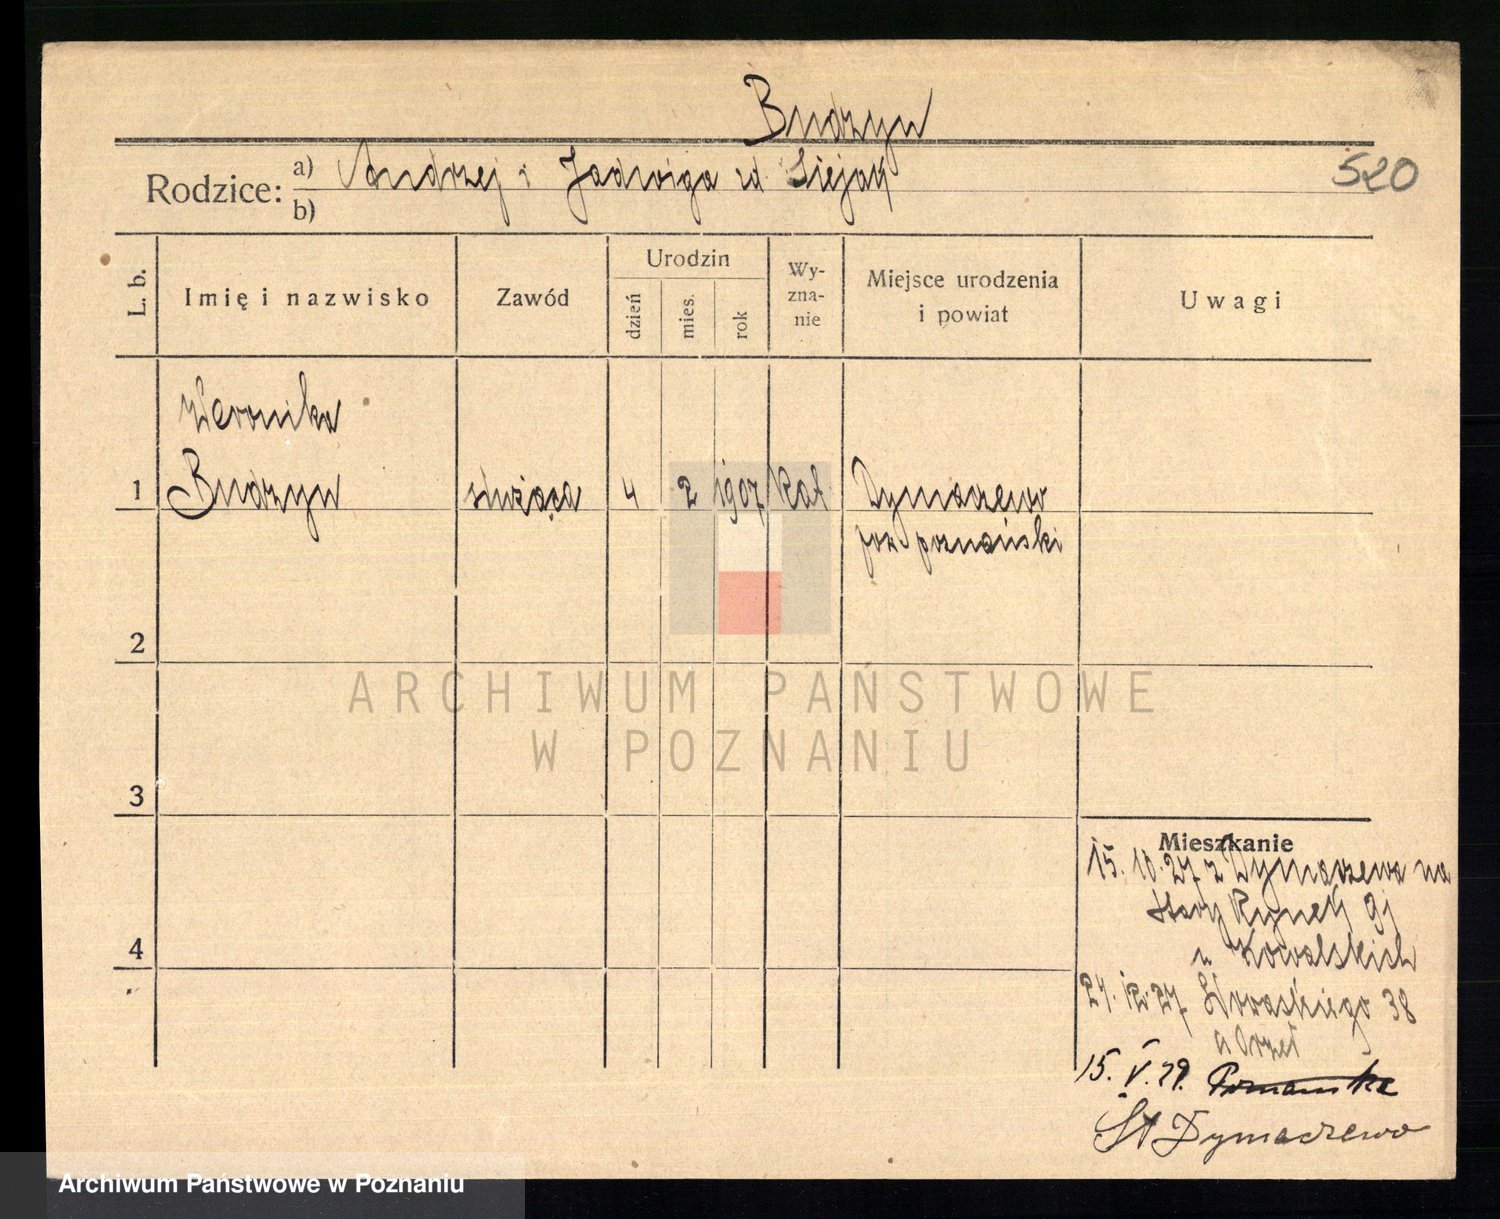 Budzyn
Rodzice: a) Andrzej i Jadwiga zd. Siejak
520
b)
L. b.
Imię i nazwisko
Zawód
Urodzin
dzień
mies.
rok
Wy-
zna-
nie
Miejsce urodzenia
i powiat
Uwagi
Weronika
1 Budzyn służąca 4 2 1907 kat. Dymaczewo
pow. poznański
2
ARCHIWUM PAŃSTWOWE
W POZNANIU
3
Mieszkanie
15. 10. 27 z Dymaczewa na
Stary Rynek 91
u Kowalskich
4
24. 12. 27 38
u
15. V. 29.
St Dymaczewo
Archiwum Państwowe w Poznaniu